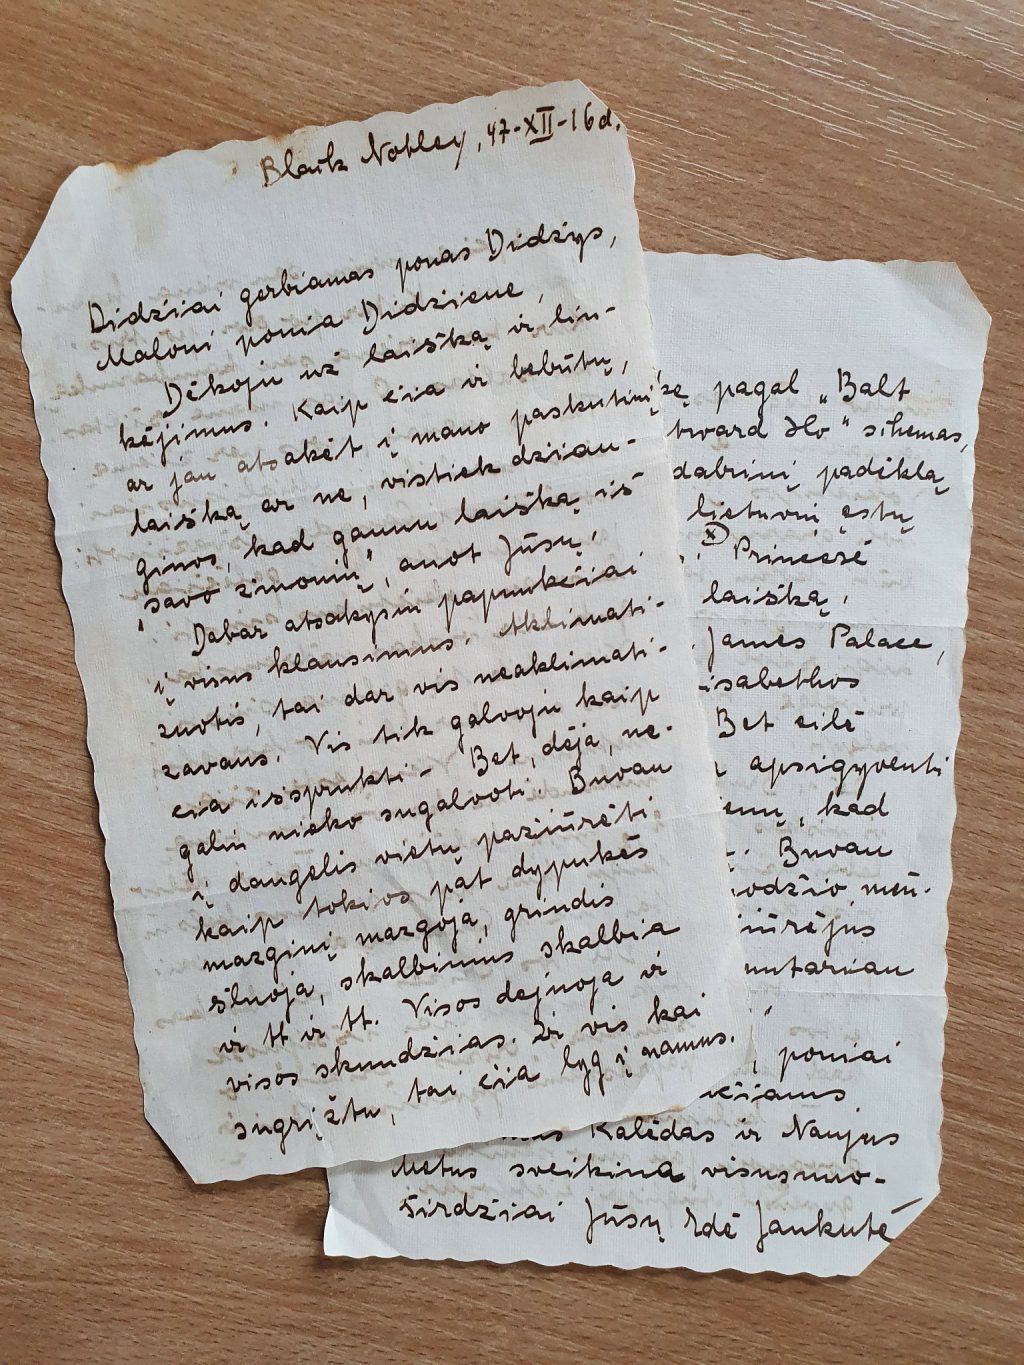 Black Notley, 47-XII-16d.
Didžiai gerbiamas ponas Didžys,
Maloni ponia Didžiene,
Dėkoju už laišką ir lin-
kėjimus. Kaip čia ir bebūtų,
ar jau atsakėt į mano paskutinį
laišką ar ne, vistiek džiau-
giuos, kad gaunu laišką iš
"savo žmonių", anot Jūsų.
Dabar atsakysiu papunkčiai
į visus klausimus. Aklimati-
zuotis, tai dar vis neaklimati-
zavaus. Vis tik galvoju kaip
čia išsprukti - Bet, dėja, ne-
galiu nieko sugalvoti. Buvau
į daugelis vietų pažiūrėti
kaip tokios pat dypukės
mazginį mazgoja, grindis
šluoja, skalbinius skalbia
ir tt ir tt. Visos dejuoja ir
visos skundžias. Ir vis kai
sugrįžtu, tai čia lyg į namus.
pagal "Balt
tward Ho" schemas,
padėklą
lietuvių
x) Princesė
laišką.
James Palace,
isabethos
Bet eilė
apsigyventi
kad
Buvau
žodžio, mūs-
iūrėjus
mutariau
, poniai
Kalėdas ir Naujus
Metus sveikina visusnuo-
širdžiai Jūsų Edė Jankutė